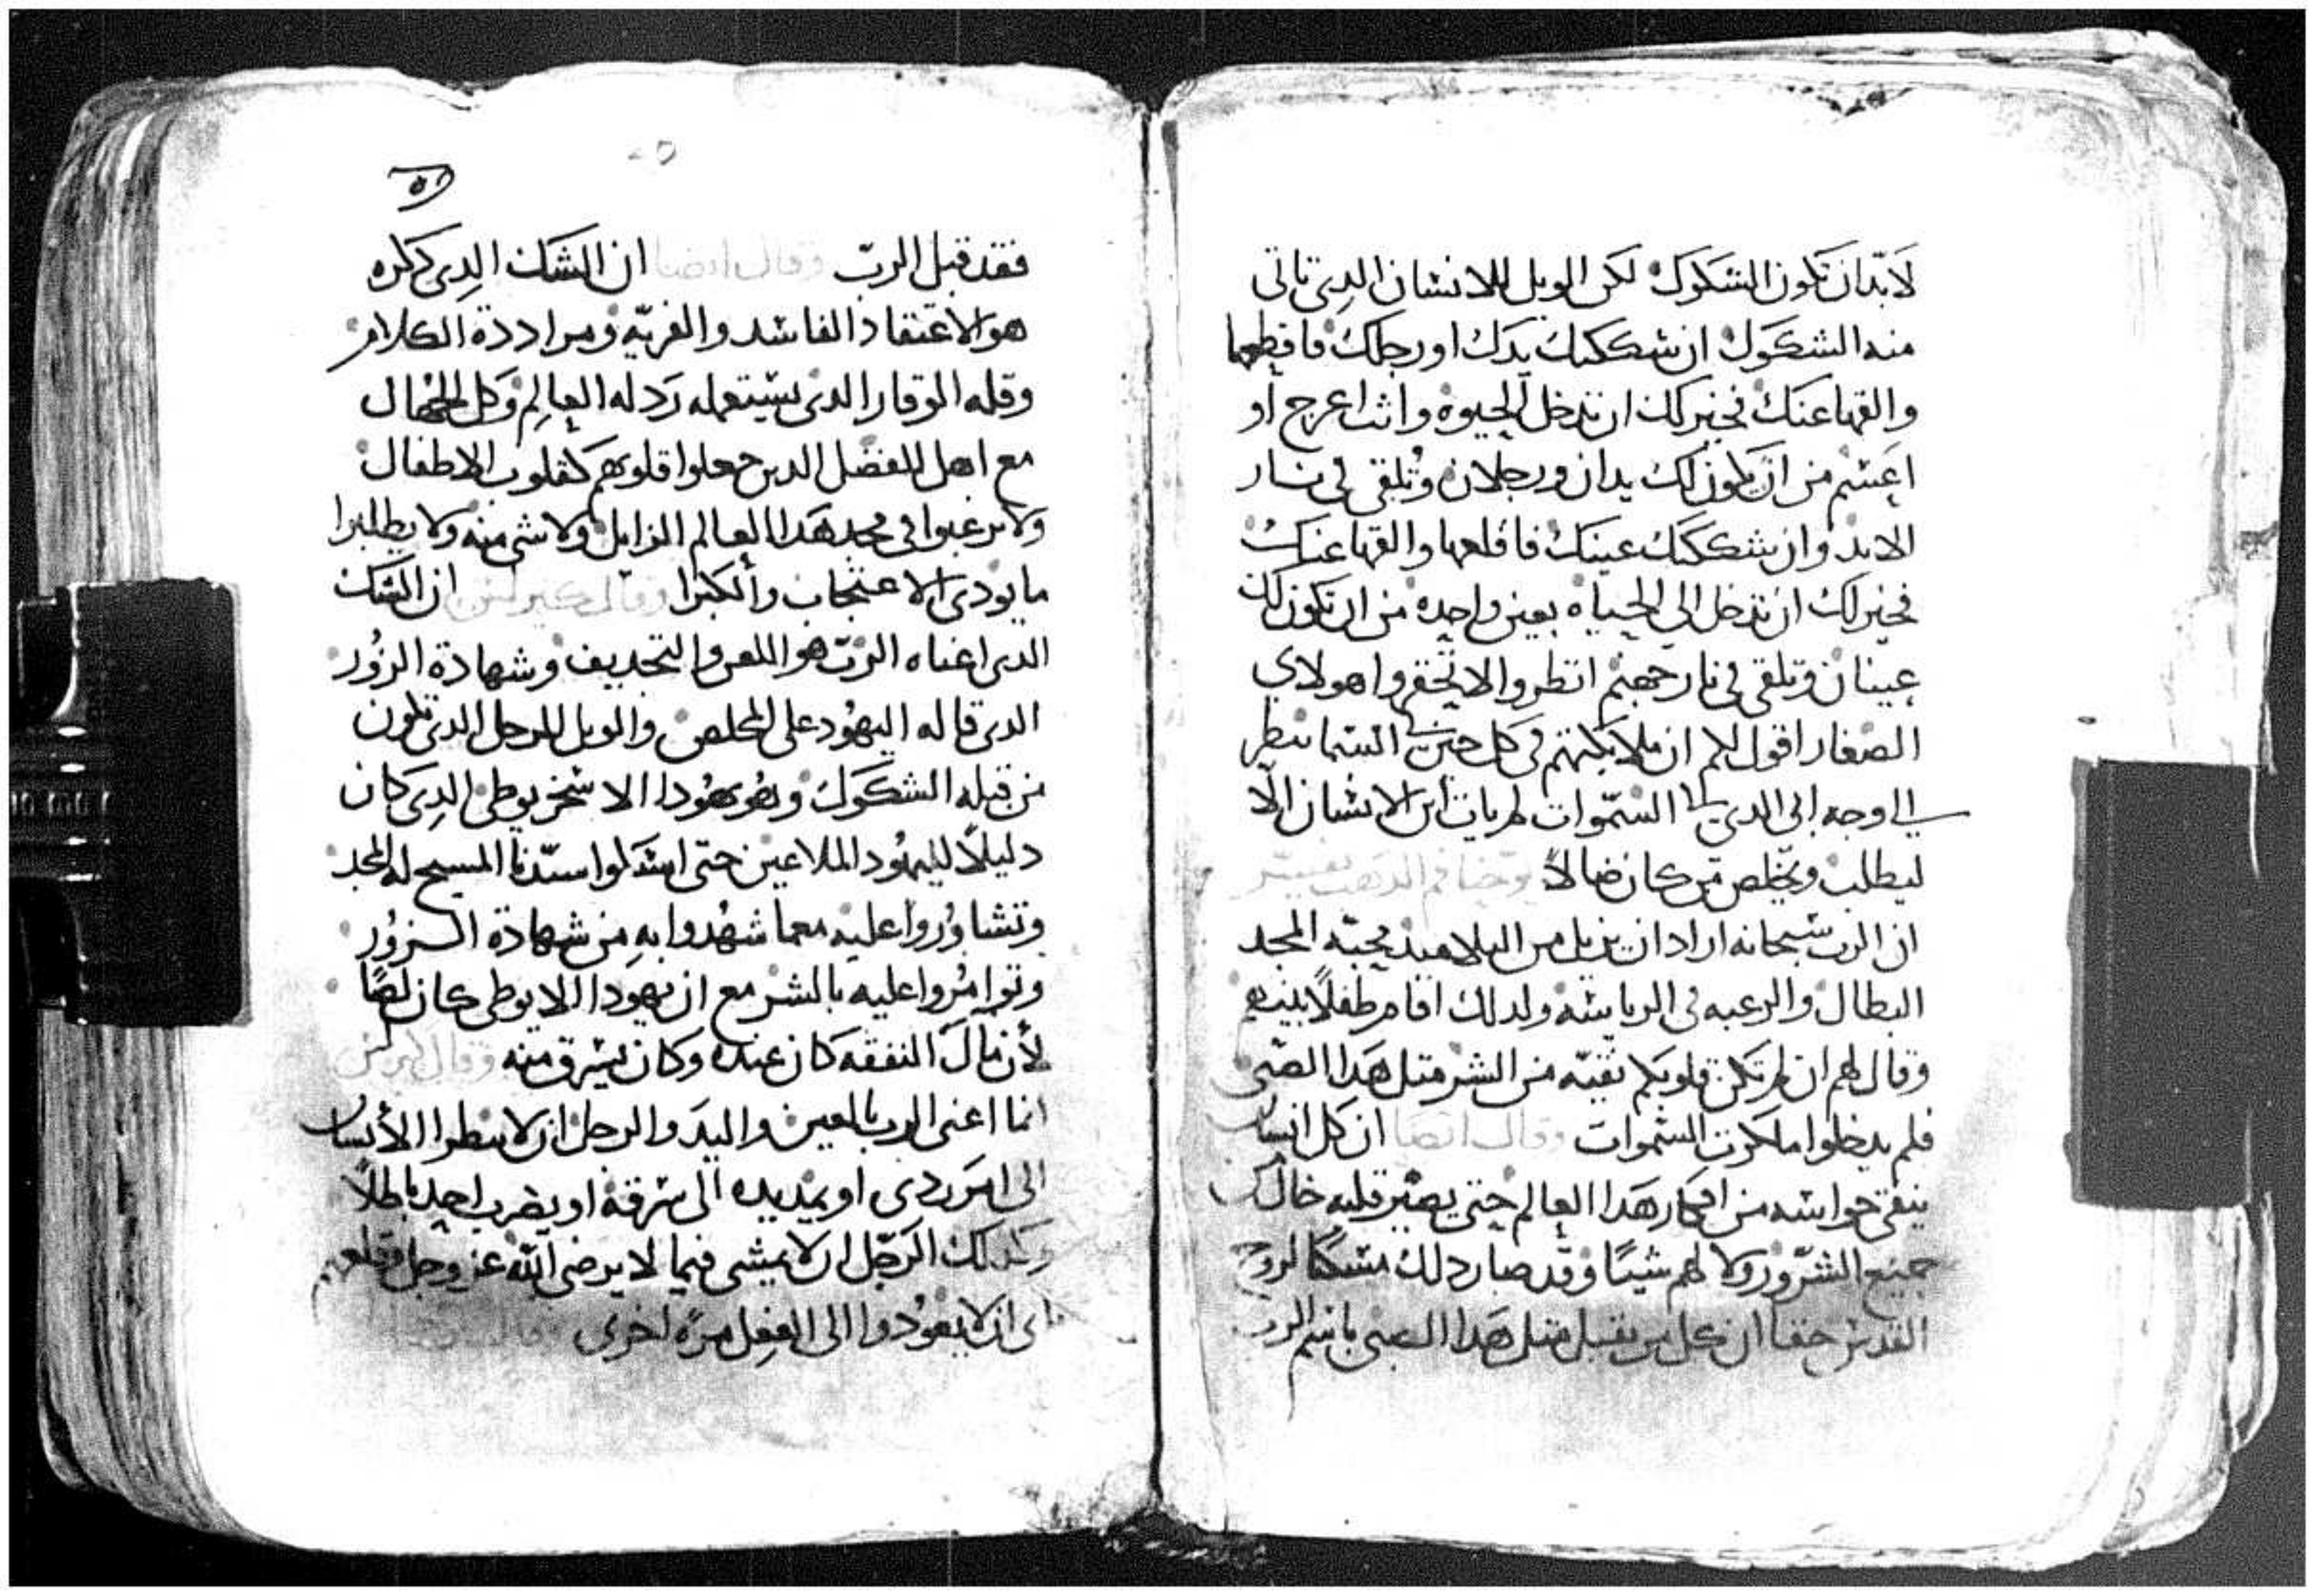 لابد ان تكون الشكوك لكن الويل للانسان الدى تاتى
منه الشكوك ان شككتك يدك او رجلك فاقطعها
والقها عنك فخير لك ان تدخل الحيوه وانت اعرج او
اعسم من ان يكون لك يدان ورجلان وتلقى فى نار
الابد وان شككتك عينك فاقلعها والقها عنك
فخير لك ان تدخل الى الحياه بعين واحده من ان تكون لك
عينان وتلقى فى نار جهنم انظروا لا تحقروا هولاى
الصغار اقول لكم ان ملايكتهم فى كل حين فى السما ينظر
وجه ابى الدى فى السموات لم يات ابن الانسان الا
ليطلب ويخلص من كان ضالاً يوحنا فم الدهب يفسر
ان الرب سبحانه اراد ان يزيل من التلاميد محبه المجد
البطال والرغبه فى الرياسه ولدلك اقام طفلاً بينهم
وقال لهم ان لم تكن قلوبكم نقيه من الشر متل هدا الصبى
فلم يدخلوا ملكوت السموات وقال ايضا ان كل انسان
ينقى حواسه من افكار هدا العالم حتى يصير قلبه خال من
جميع الشرور ولا لهم شياً وقد صار دلك مسكنا لروح
القدس حقا ان كل من يقبل متل هدا الصبى باسم الرب
٥١
فقد قبل الرب وقال ايضا ان الشك الدى دكره
هو الاعتقاد الفاسد والفريه ومراددة الكلام
وقله الوقار الدى يستعمله ردله العالم وكل الجهال
مع اهل الفضل الدين جعلوا قلوبهم كقلوب الاطفال
ولا يرغبوا فى مجد هدا العالم الزايل ولا شى منه ولا يطلبوا
ما يودى الاعتجاب والكبرا وقال كيرلس ان الشك
الدى اعناه الرب هو اللعن والتجديف وشهادة الزور
الدى قاله اليهود على المخلص والويل للرجل الدى تكون
من قبله الشكوك وهو يهودا الاسخريوطى الدى كان
دليلاً لليهود الملاعين حتى امسكوا سيدنا المسيح له المجد
وتشاوروا عليه معما شهدوا به من شهادة الزور
وتوامروا عليه بالشر مع ان يهودا الايوطى كان لصًا
لأن مال النفقه كان عنده وكان يسرق منه وقال كيرلس
انما اعنى الرب بالعين واليد والرجل ان لا ينظر الأنسان
الى امر ردى او يمد يده الى سرقه او يضرب احد باطلاً
وكدلك الرجل ان لا يمشى فيما لا يرضى الله عز وجل وقلعهم
اى ان لا يعودوا الى الفعل مره اخرى